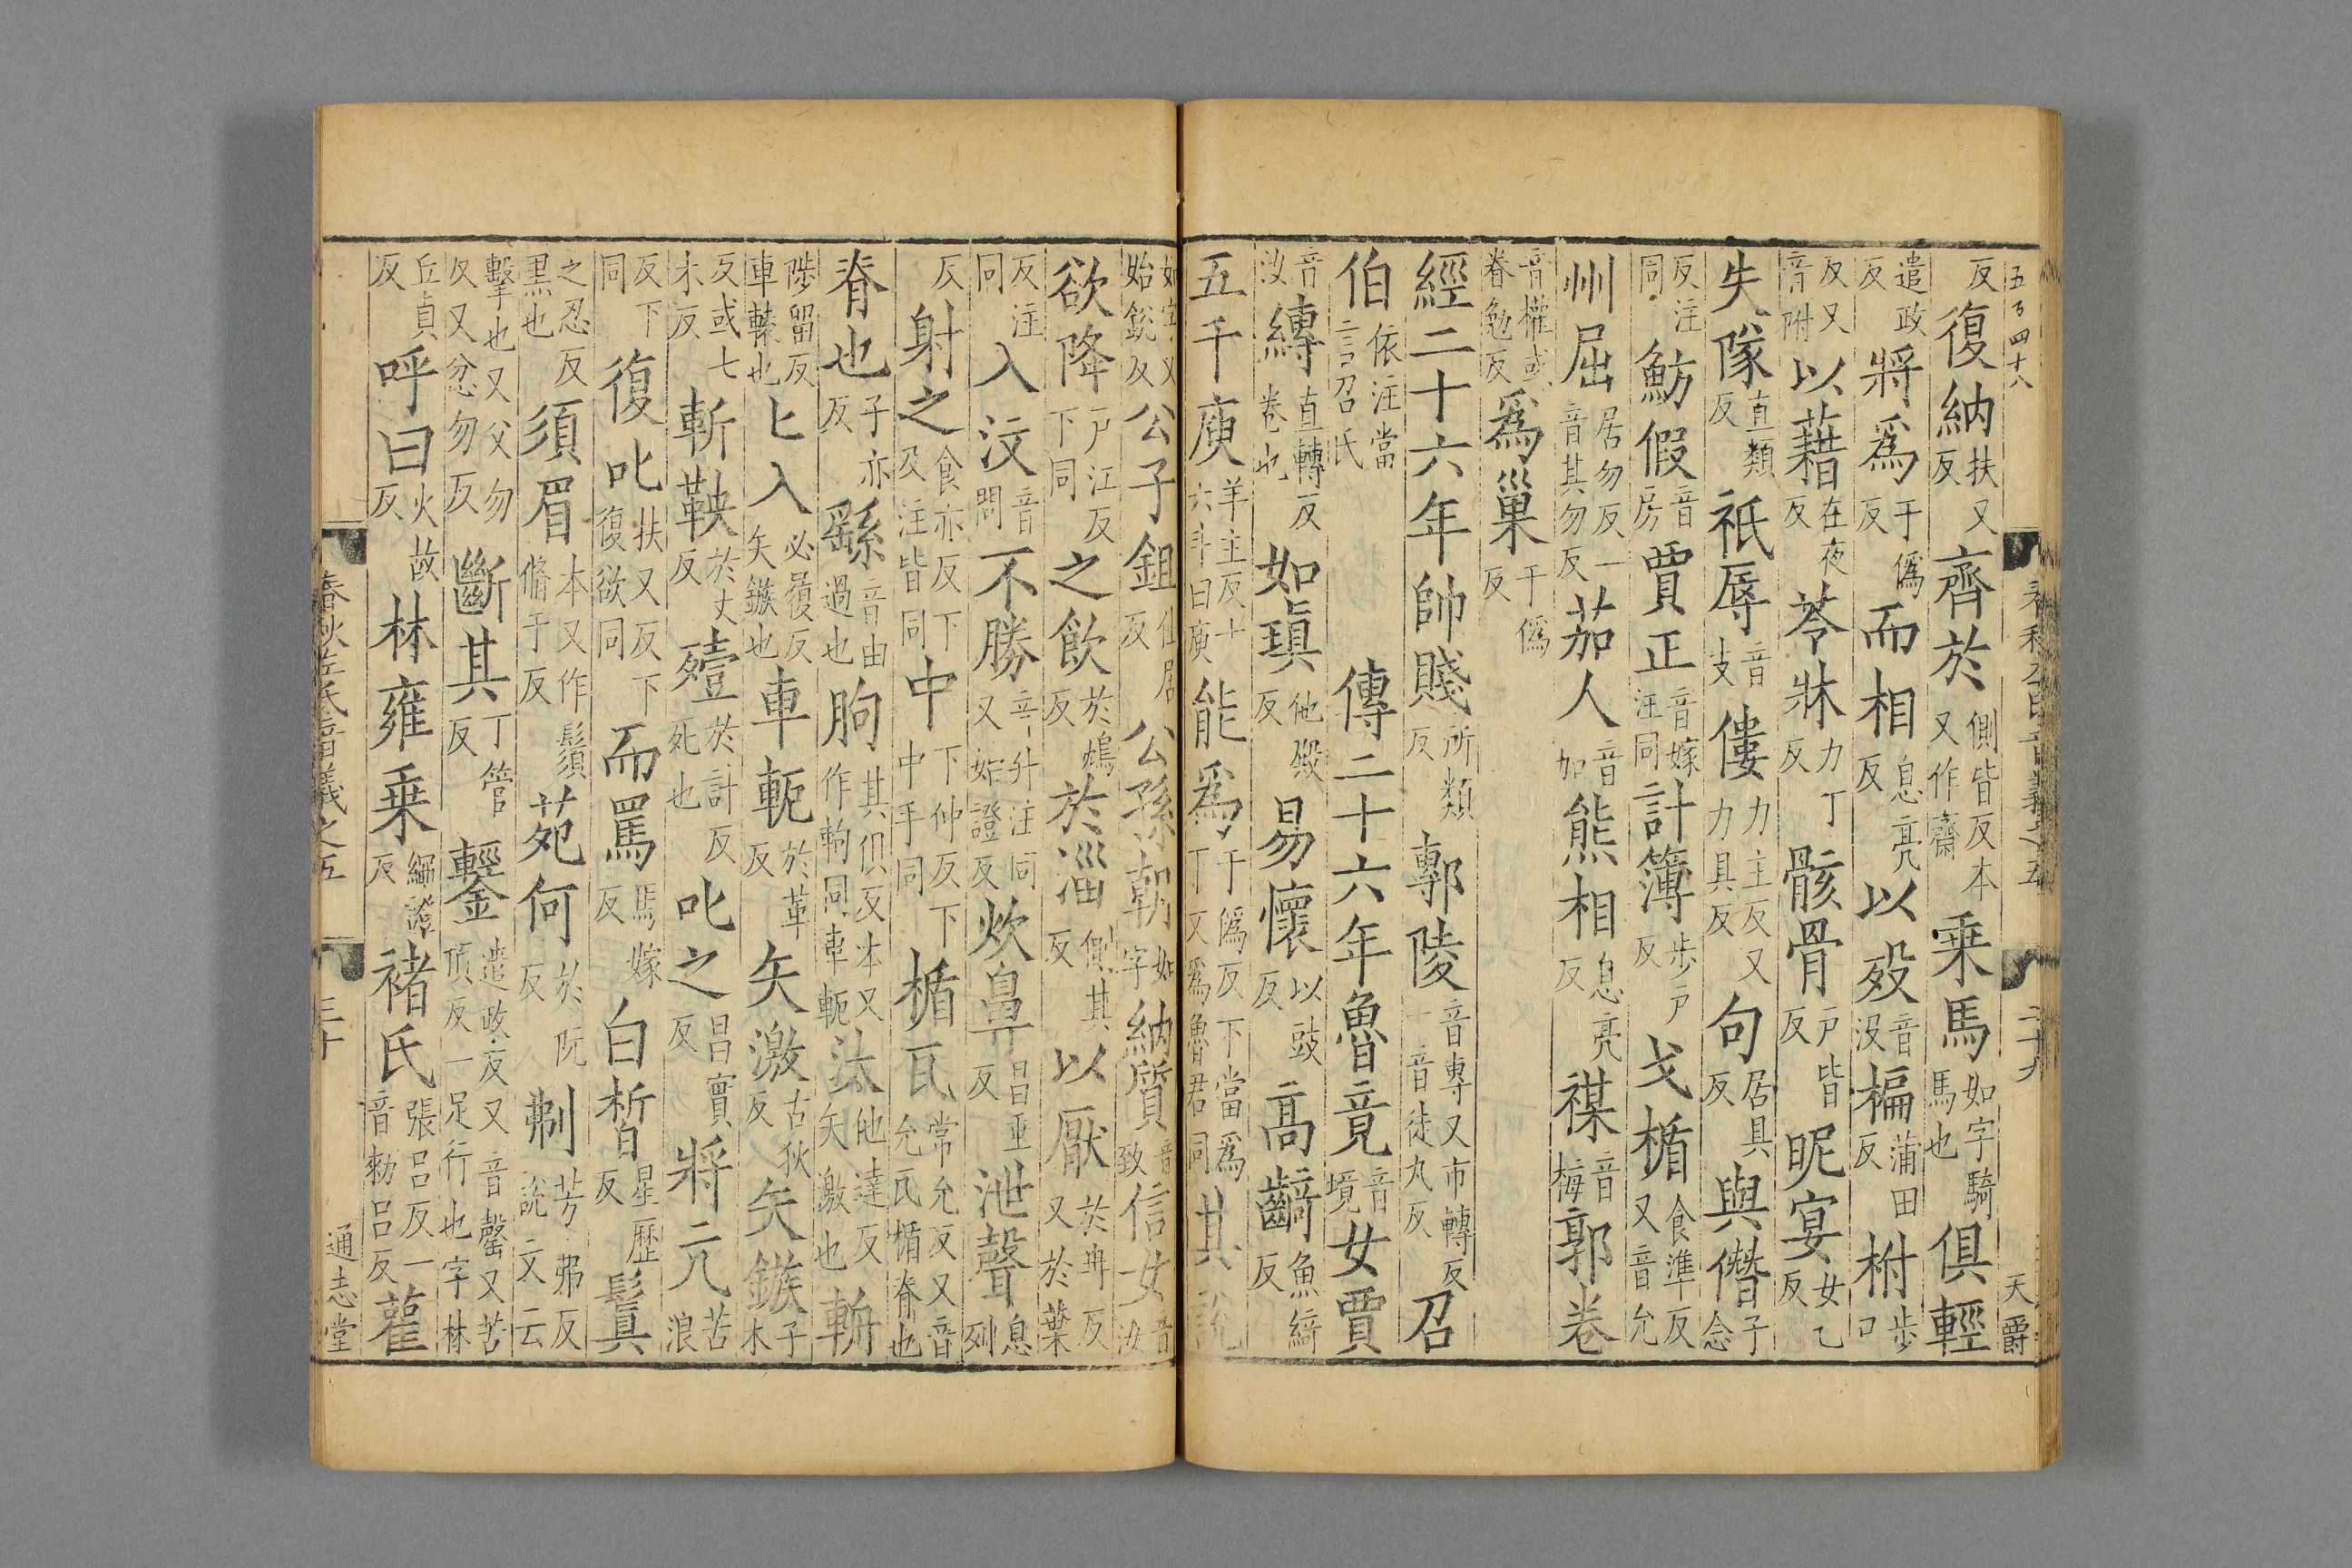 五百四十八 春秋左氏音義之五 二十九 天爵
反復納扶又反齊於側皆反本又作齋乗馬如字騎馬也俱輕
遣政反將爲于僞反而相息亮反以歿音没楄蒲田反柎步口
反又音附以藉在夜反苓牀力丁反骸骨戸皆反昵宴女乙反
失隊直類反祇辱音支僂力主反又力具反句居具反與僭子念
反注同魴假音房賈正音嫁注同計簿步戸反戈楯食準反又音允
州屈居勿反一音其勿反茄人音加熊相息亮反禖音梅郭卷
音權或眷勉反爲巢于僞反
經二十六年帥賤所類反鄟陵音專又市轉反一音徒丸反召
伯依注當言召氏傳二十六年魯竟音境女賈
音汝縳直轉反卷也如瑱他殿反易懷以豉反高齮魚綺反
五千庾羊主反十六斗曰庾能爲于僞反下當爲丁又爲魯君同其說
如字又始銳反公子鉏仕居反公孫朝如字納質音致信女音汝
欲降戸江反下同之飲於鴆反於淄側其反以厭於冉反又於葉
反注同入汶音問不勝音升注同又始證反炊鼻昌垂反泄聲息列
反射之食亦反下及注皆同中下仲反下中手同楯瓦常允反又音允瓦楯脊也
脊也子亦反繇音由過也朐其俱反本又作軥同車軛汰他達反矢激也輈
陟留反車轅也匕入必履反矢鏃也車軛於革反矢激古狄反矢鏃子木
反或七木反斬鞅於丈反殪於計反死也叱之昌實反將亢苦浪
反下同復叱扶又反下復欲同而罵馬嫁反白晳星歷反鬒
之忍反黑也須眉本又作鬚脩于反苑何於阮反刜芳弗反說文云
擊也又父勿反又忿勿反斷其丁管反鑋遣政反又音磬又苦頂反一足行也字林
丘貞反呼曰火故反林雍乗繩證反褚氏張呂反一音勑呂反雚
春秋左氏音義之五 三十 通志堂